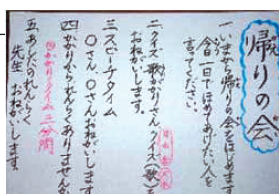 帰りの会
一 いまから帰りの会をはじめます。
今日一日でほめてあげたい人を
言ってください。
二 クイズ、歌がかりさん、クイズか歌を
おねがいします。
三 スピーチタイム
○さん、○さんおねがいします。
四 かかりかられんらくありませんか。
四かかりタイム 三分間
五 あしたのれんらく
先生 おねがいします。